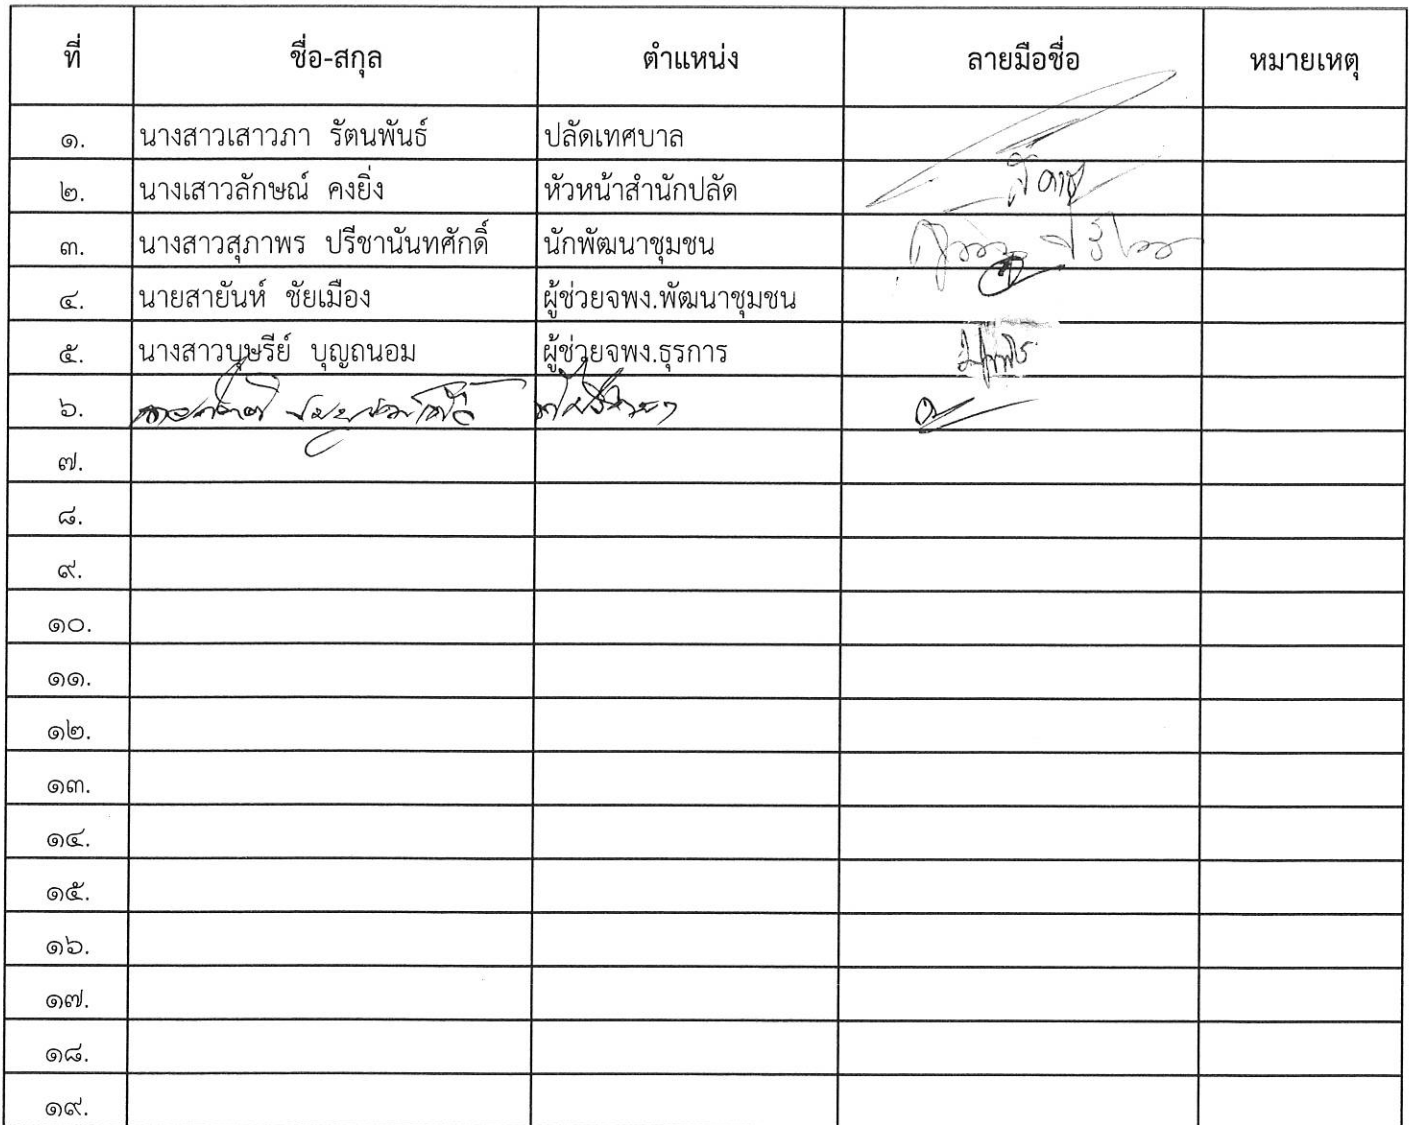 ที่ ชื่อ-สกุล ตำแหน่ง ลายมือชื่อ หมายเหตุ
๑. นางสาวเสาวภา รัตนพันธ์ ปลัดเทศบาล
๒. นางเสาวลักษณ์ คงยิ่ง หัวหน้าสำนักปลัด
๓. นางสาวสุภาพร ปรีชานันทศักดิ์ นักพัฒนาชุมชน
๔. นายสายันห์ ชัยเมือง ผู้ช่วยจพง.พัฒนาชุมชน
๕. นางสาวบุษรีย์ บุญถนอม ผู้ช่วยจพง.ธุรการ
๖.
๗.
๘.
๙.
๑๐.
๑๑.
๑๒.
๑๓.
๑๔.
๑๕.
๑๖.
๑๗.
๑๘.
๑๙.